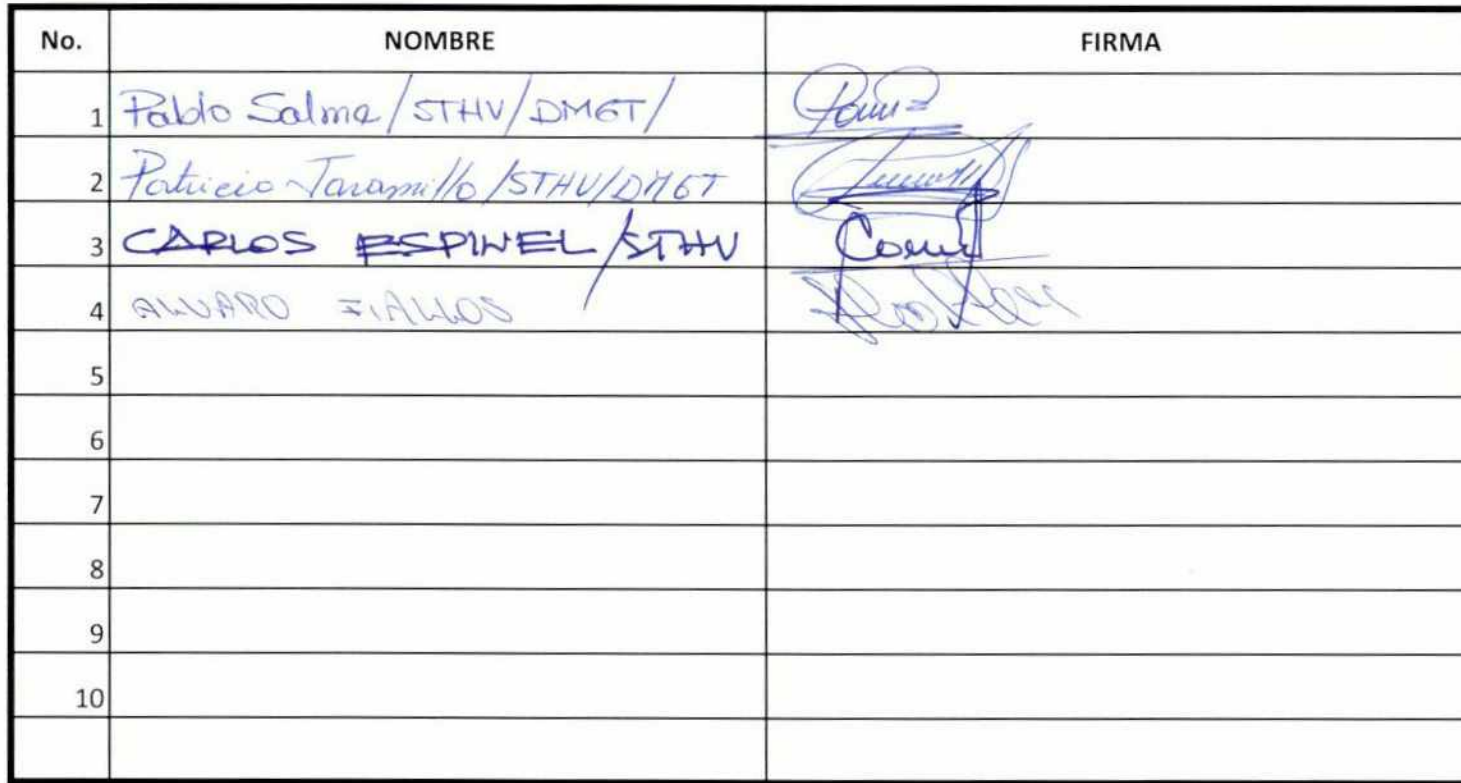 No. NOMBRE FIRMA
1 Pablo Salme/STHV/DMGT/
2 Patricio Jaramillo/STHV/DMGT
3 CARLOS ESPINEL/STHV
4 ALVARO FIALLOS
5
6
7
8
9
10